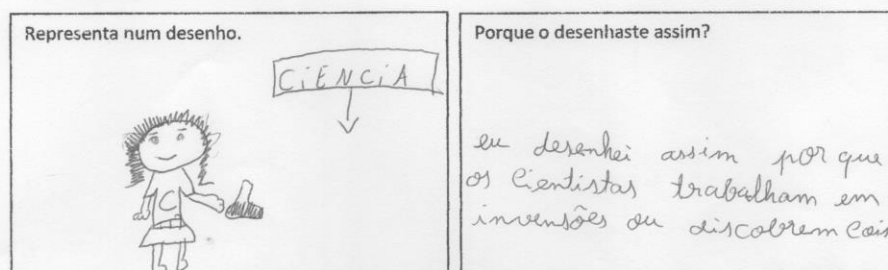 Representa num desenho.
CiENCiA
C
Porque o desenhaste assim?
eu desenhei assim por que
os cientistas trabalham em
invensões ou discobrem cois